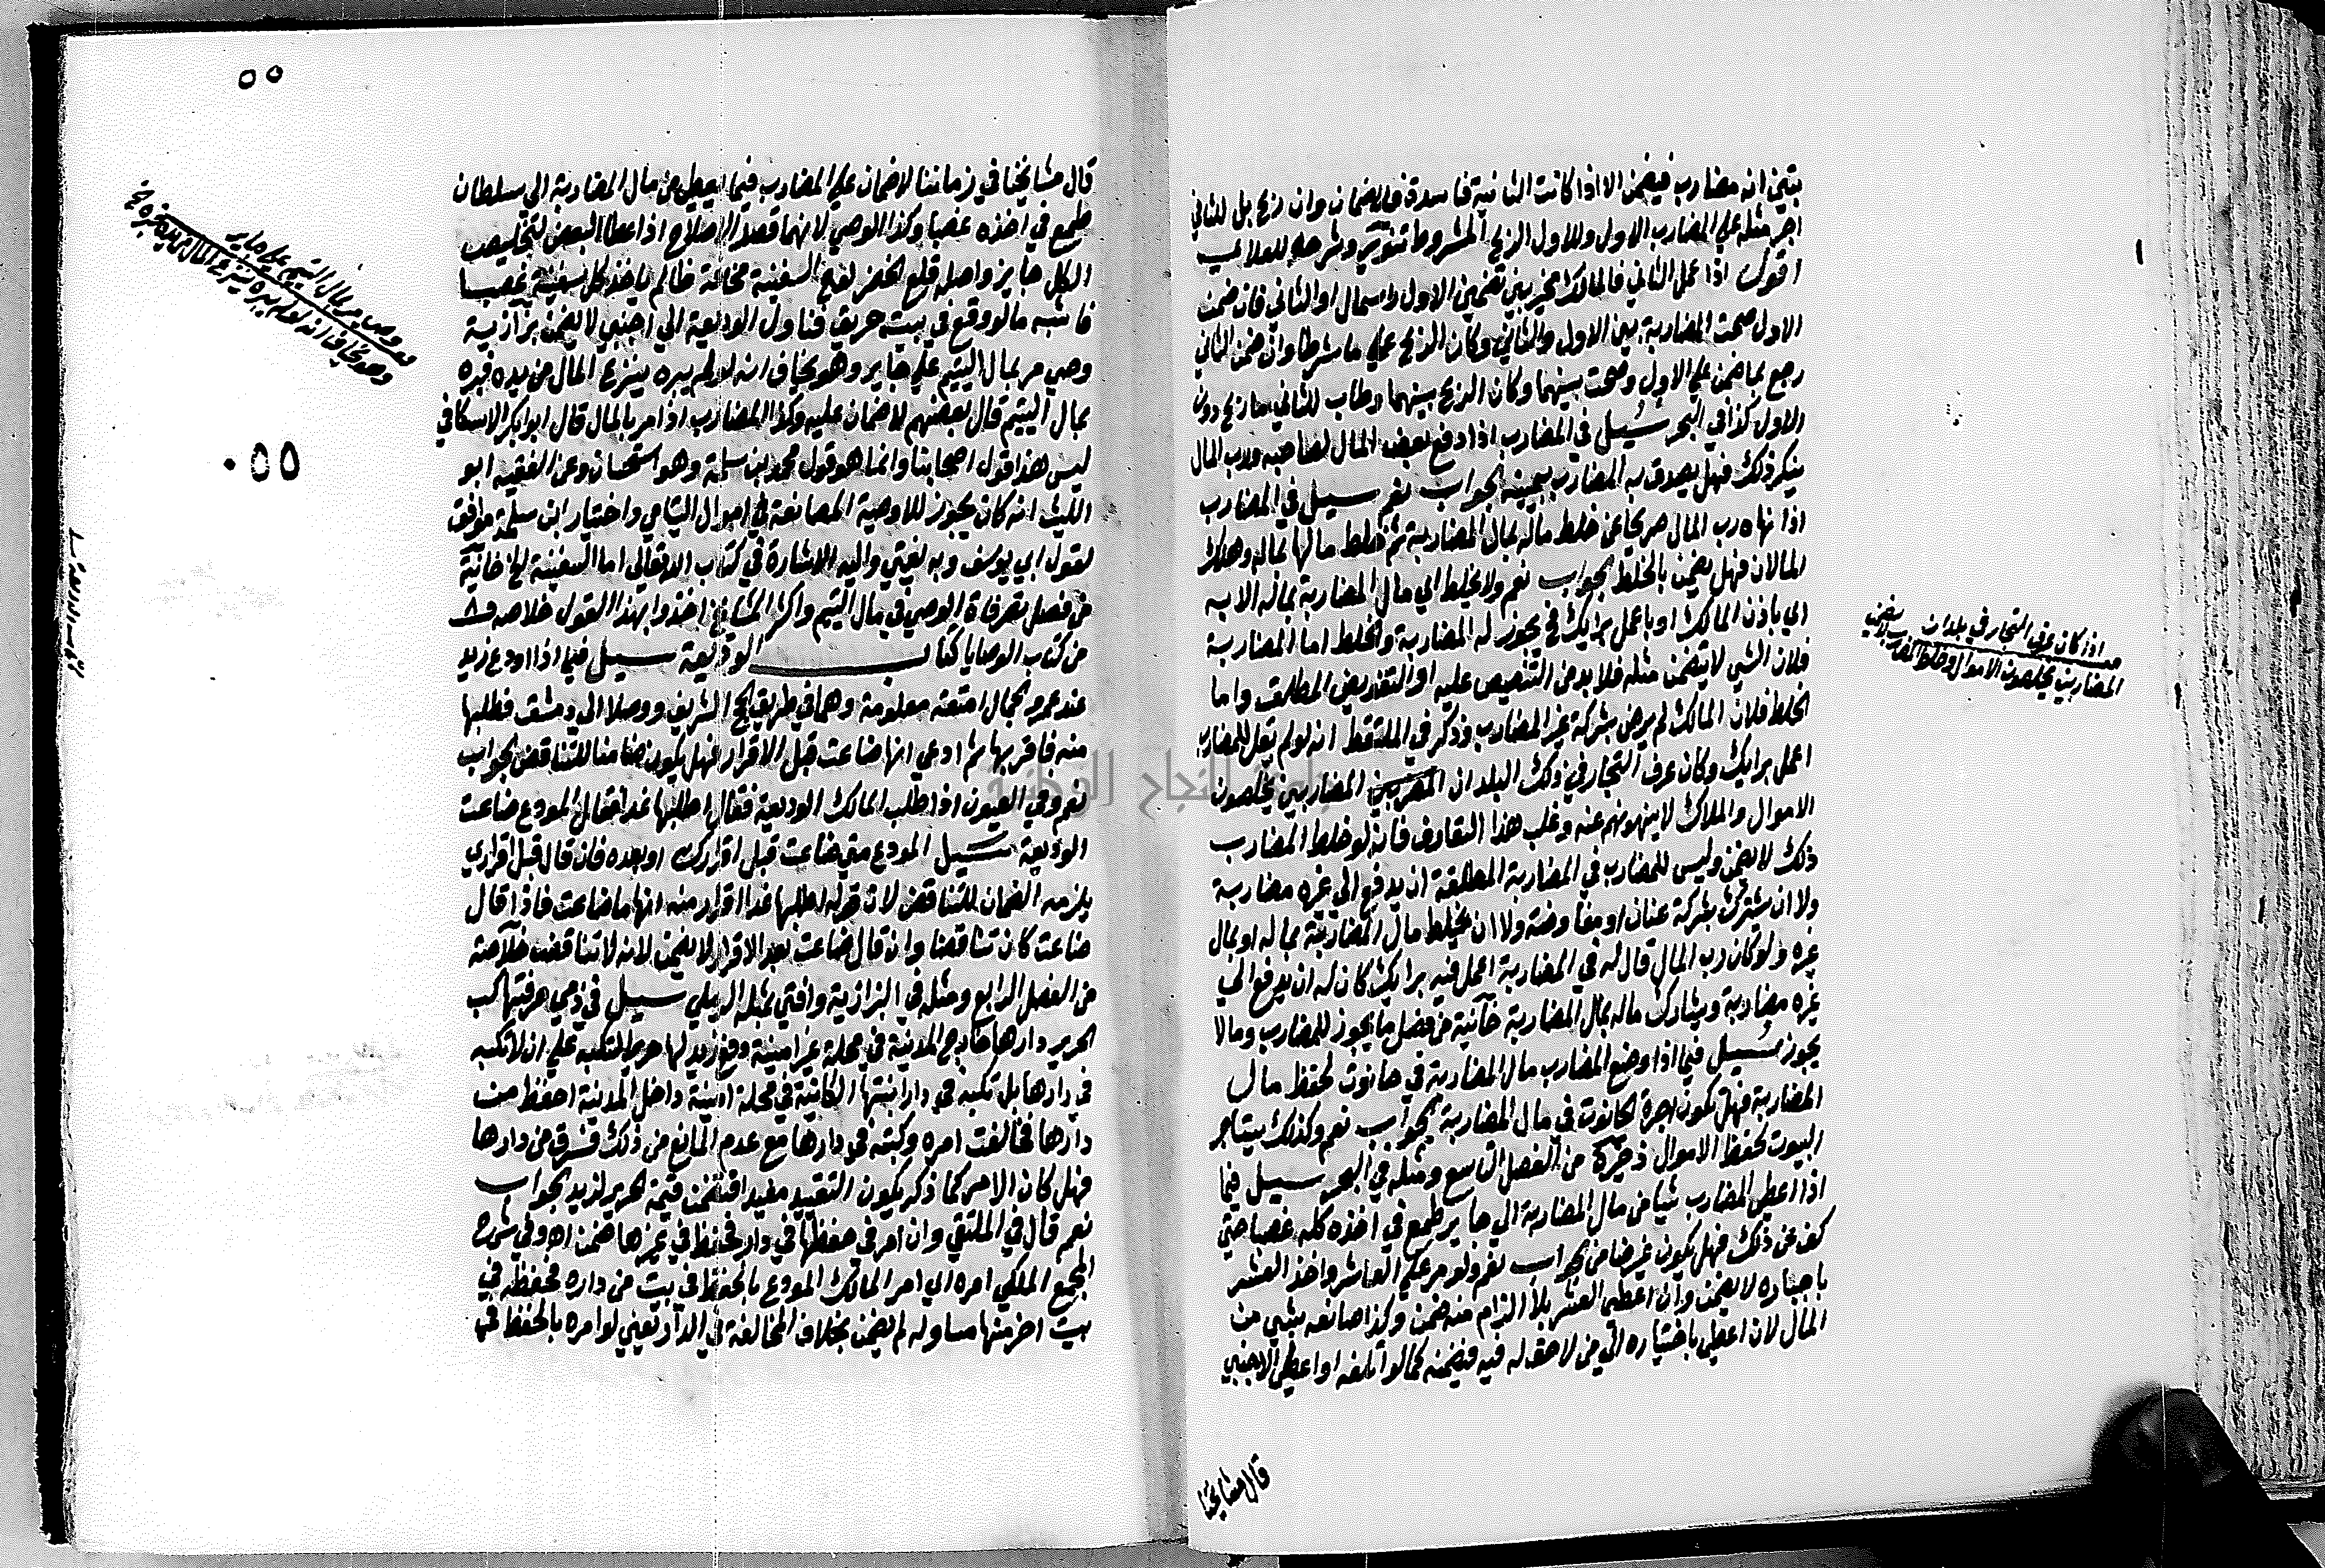 يتبين انه مضارب فيضمن الا اذا كانت الثانية فاسدة فلا ضمان وان ربح بل للثاني
اجر مثله علي المضارب الاول وللاول الربح المشروط تنوير وشرحه للعلائي
اقول اذا عمل الثاني فالمالك مخير بين تضمين الاول راسمال او الثاني فان ضمن
الاول صحت المضاربة بين الاول والثاني وكان الربح علي ما شرطا وان ضمن الثاني
رجع بما ضمن علي الاول وصحت بينهما وكان الربح بينهما وطاب للثاني ما ربح دون
الاول كذا في البحر سئيل في المضارب اذا دفع بعض المال لصاحبه ورب المال
ينكر ذلك فهل يصدق به المضارب بيمينه الجواب نعم سيل في المضارب
اذا نهاه رب المال صريحا عن خلط ماله بمال المضاربة ثم خلط مالها بماله وهلك
المالان فهل يضمن بالخلط الجواب نعم ولا يخلط اي مال المضاربة بماله الا به
اي باذن المالك او باعمل برايك فيجوز له المضاربة والخلط اما المضاربة
فلان الشي لا يتضمن مثله فلا بد من التنصيص عليه او التفويض المطلق واما
الخلط فلان المالك لم يرض بشركة غير المضارب وذكر في الملتقط انه لو لم يقل للمضارب
اعمل برايك وكان عرف التجار في ذلك البلد ان المضاربين يخلطون
الاموال والملاك لا ينهونهم عنه وغلب هذا التعارف فانه لو خلط المضارب
ذلك لا يضمن وليس للمضارب في المضاربة المطلقة ان يدفع الي غيره مضاربة
ولا ان يشترك بشركة عنان او مفاوضة ولا ان يخلط مال المضاربة بماله او بمال
غيره ولو كان رب المال قال له في المضاربة اعمل فيه برايك كان له ان يدفع الي
غيره مضاربة ويشارك ماله بمال المضاربة خانية من فصل ما يجوز للمضارب وما لا
يجوز سئيل فيما اذا وضع المضارب مال المضاربة في حانوت لحفظ مال
المضاربة فهل تكون اجرة الحانوت في مال المضاربة الجواب نعم وكذلك يستاجر
البيوت لحفظ الاموال ذخيرة من الفصل التاسع ومثله في البحر سيل فيما
اذا اعطي المضارب شيا من مال المضاربة الي جاير طمع في اخذه كله غصبا حتي
كف عن ذلك فهل يكون غير ضامن الجواب نعم ولو مر علي العاشر واخذ العشر
باجباره لا يضمن وان اعطي العشر بلا الزام منه ضمن وكذا صانعه بشي من
المال لان اعطي باختياره الي من لا حق له فيه فيضمنه كما لو اتلفه او اعطي الاجنبي
قال مشايخنا
اذا كان عرف التجار في بلد ان
المضاربين يخلطون الاموال وخلط المضارب لا يضمن
قال مشايخنا في زماننا لا ضمان علي المضارب فيما يعطي من مال المضاربة الي سلطان
طمع في اخذه غصبا وكذا الوصي لانهما قصدا الاصلاح اذا عطا البعض لتخليص
الكل جايز واصله قلع الخضر لوح السفينة مخافة ظالم ياخذ كل سفينة غصبا
فاشبه ما لو وقع في بيته حريق فناول الوديعة الي اجنبي لا يضمن بزازية
وصي مر بمال اليتيم علي جاير وهو يخاف انه لو لم يبره ينزع المال من يده فبره
بمال اليتيم قال بعضهم لا ضمان عليه وكذا المضارب اذا مر بالمال قال ابو بكر الاسكافي
ليس هذا قول اصحابنا وانما هو قول محمد بن سلمة وهو استحسان وعن الفقيه ابو
الليث انه كان يجوز للاوصية المصانعة في اموال اليتامي واختيار ابن سلمة موافق
لقول ابي يوسف وبه يفتي واليه الاشارة في كتاب الله تعالى اما السفينة الخ خانية
من فصل تصرفاة الوصي في مال اليتيم واكثر المشايخ اخذوا بهذا القول خلاصه
من كتاب الوصايا كتاب الوديعة سيل فيما اذا اودع زيد
عند عمرو الجمال امتعة معلومة وهما في طريق الحج الشريف ووصلا الي دمشق فطلبها
منه فاقر بها ثم ادعي انها ضاعت قبل الاقرار فهل يكون ضامنا للتناقض الجواب
نعم وفي العيون اذا طلب المالك الوديعة فقال اطلبها غدا فقال المودع ضاعت
الوديعة سئيل المودع متي ضاعت قبل اقرارك او بعده فان قال قبل اقراري
يلزمه الضمان للتناقض لان قوله اطلبها غدا اقرار منه انها ما ضاعت فاذا قال
ضاعت كان تناقضا وان قال ضاعت بعد الاقرار لا يضمن لانه لا تناقض خلاصة
من الفصل الرابع ومثله في البزازية وافتي بمثله الرملي سيل في ذمي حرفتها كب
الحرير دارها خارج المدينة في محلة غير امينة دفع زيد لها حريرا لتكبه علي ان لا تكبه
في دارها بل تكبه في دار ابنتها الكاينة في محلة امينة داخل المدينة احفظ من
دارها فخالفت امره وكبته في دارها مع عدم المانع من ذلك فسرق من دارها
فهل كان الامر كما ذكر يكون التقييد مفيدا فتضمن قيمة الحرير لزيد الجواب
نعم قال في الملتقي وان امر في حفظها في دار فحفظ في غيرها ضمن اه وفي شرح
المجمع الملكي امره اي امر المالك المودع بالحفظ في بيت من داره فحفظه في
بيت اخر منها مساو له لم يضمن بخلاف المخالفة في الدار يعني لو امره بالحفظ في
وصي مر بمال اليتيم علي جاير
وهو يخاف انه لو لم يبره ينزع المال من يده فبره الخ
٥٥
٥٥٠
كتاب الوديعة
جامعة النجاح الوطنية